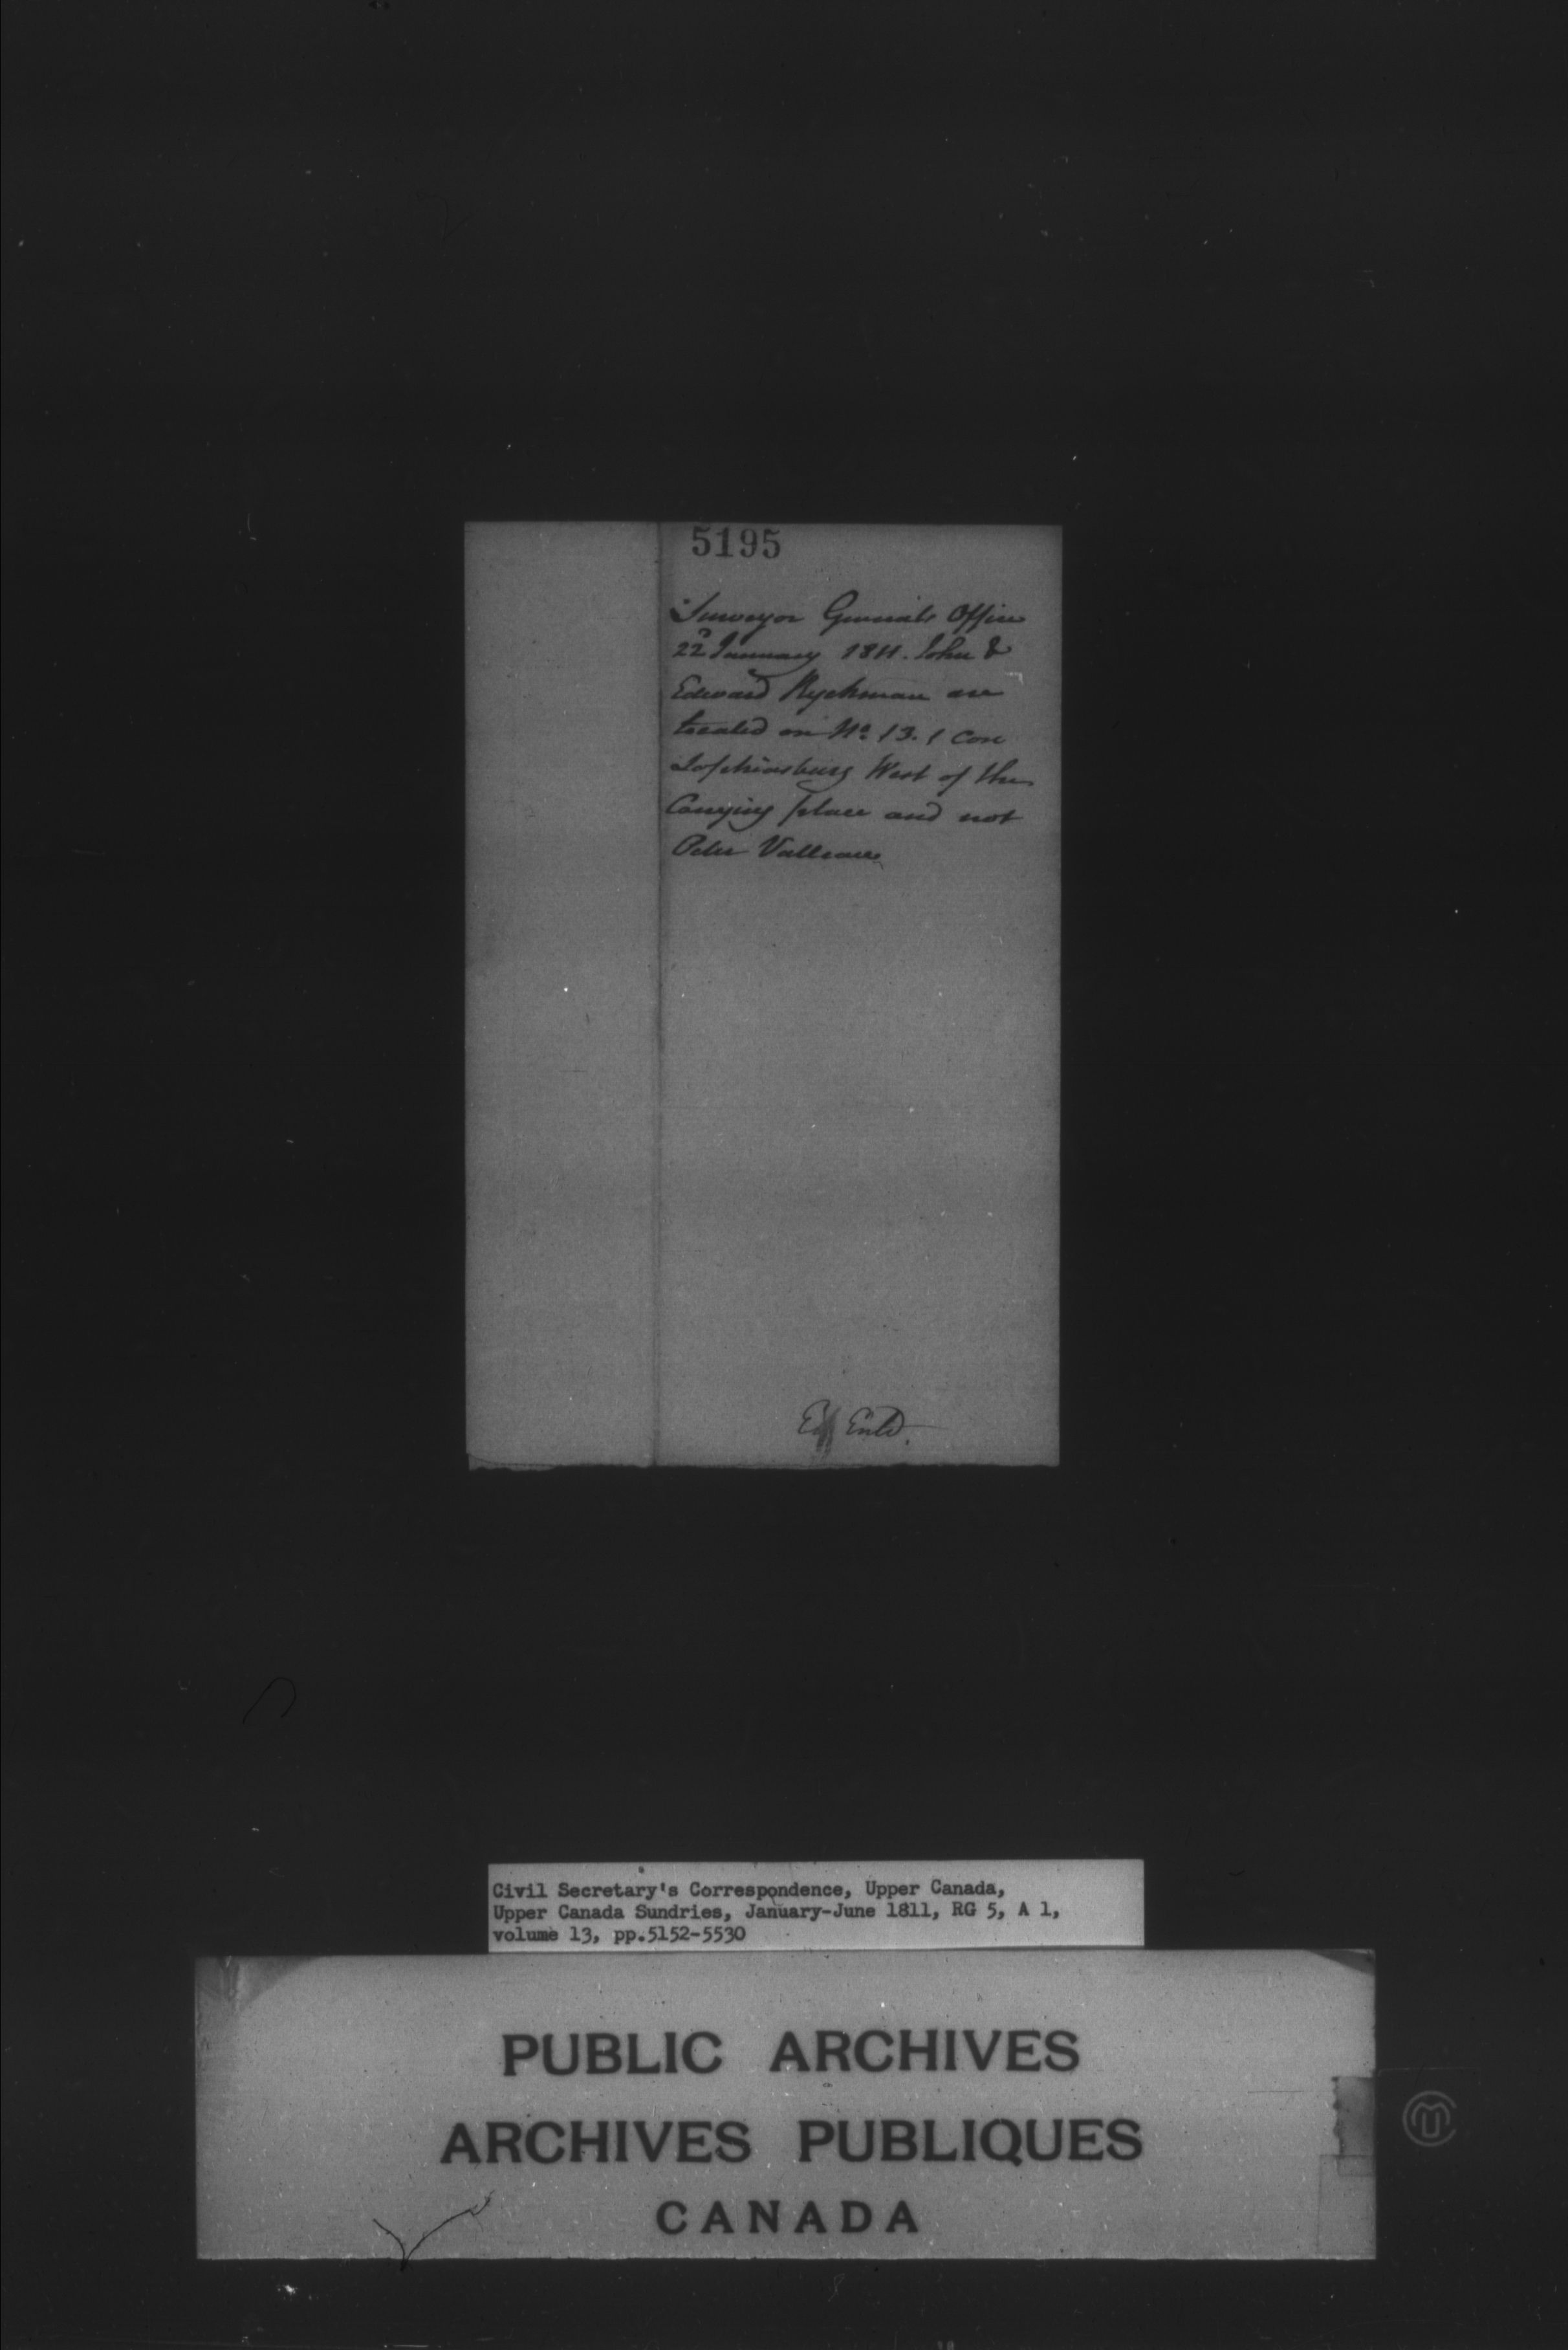 5195
Surveyor Generals Office
22d January 1811. John &
Edward Ryckman are
located on No. 13. 1 Con
Sophiasburg West of the
Carrying place and not
Peter Valleau
Entd.
Civil Secretary's Correspondence, Upper Canada,
Upper Canada Sundries, January-June 1811, RG 5, A 1,
volume 13, pp.5152-5530
PUBLIC ARCHIVES
ARCHIVES PUBLIQUES
CANADA